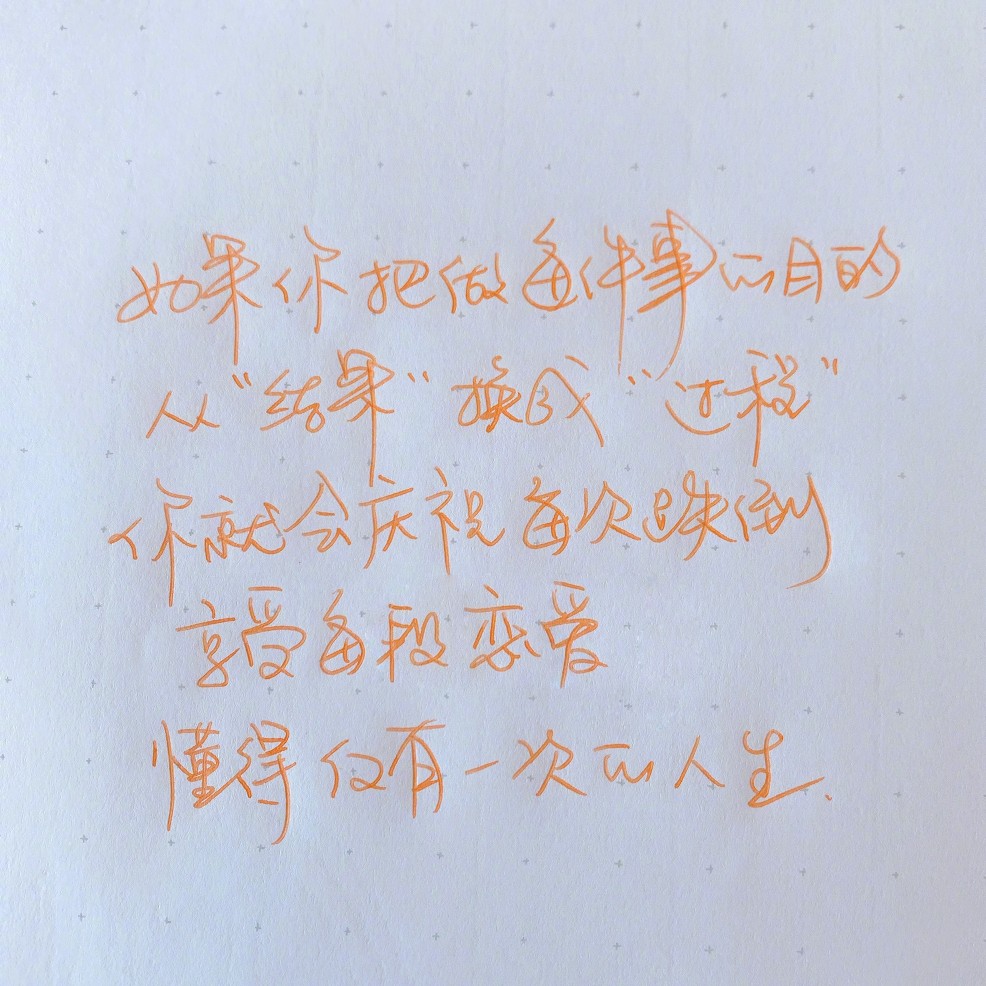 如果你把做每件事的目的
从“结果”换成“过程”
你就会庆祝每次跌倒
享受每段恋爱
懂得仅有一次的人生.